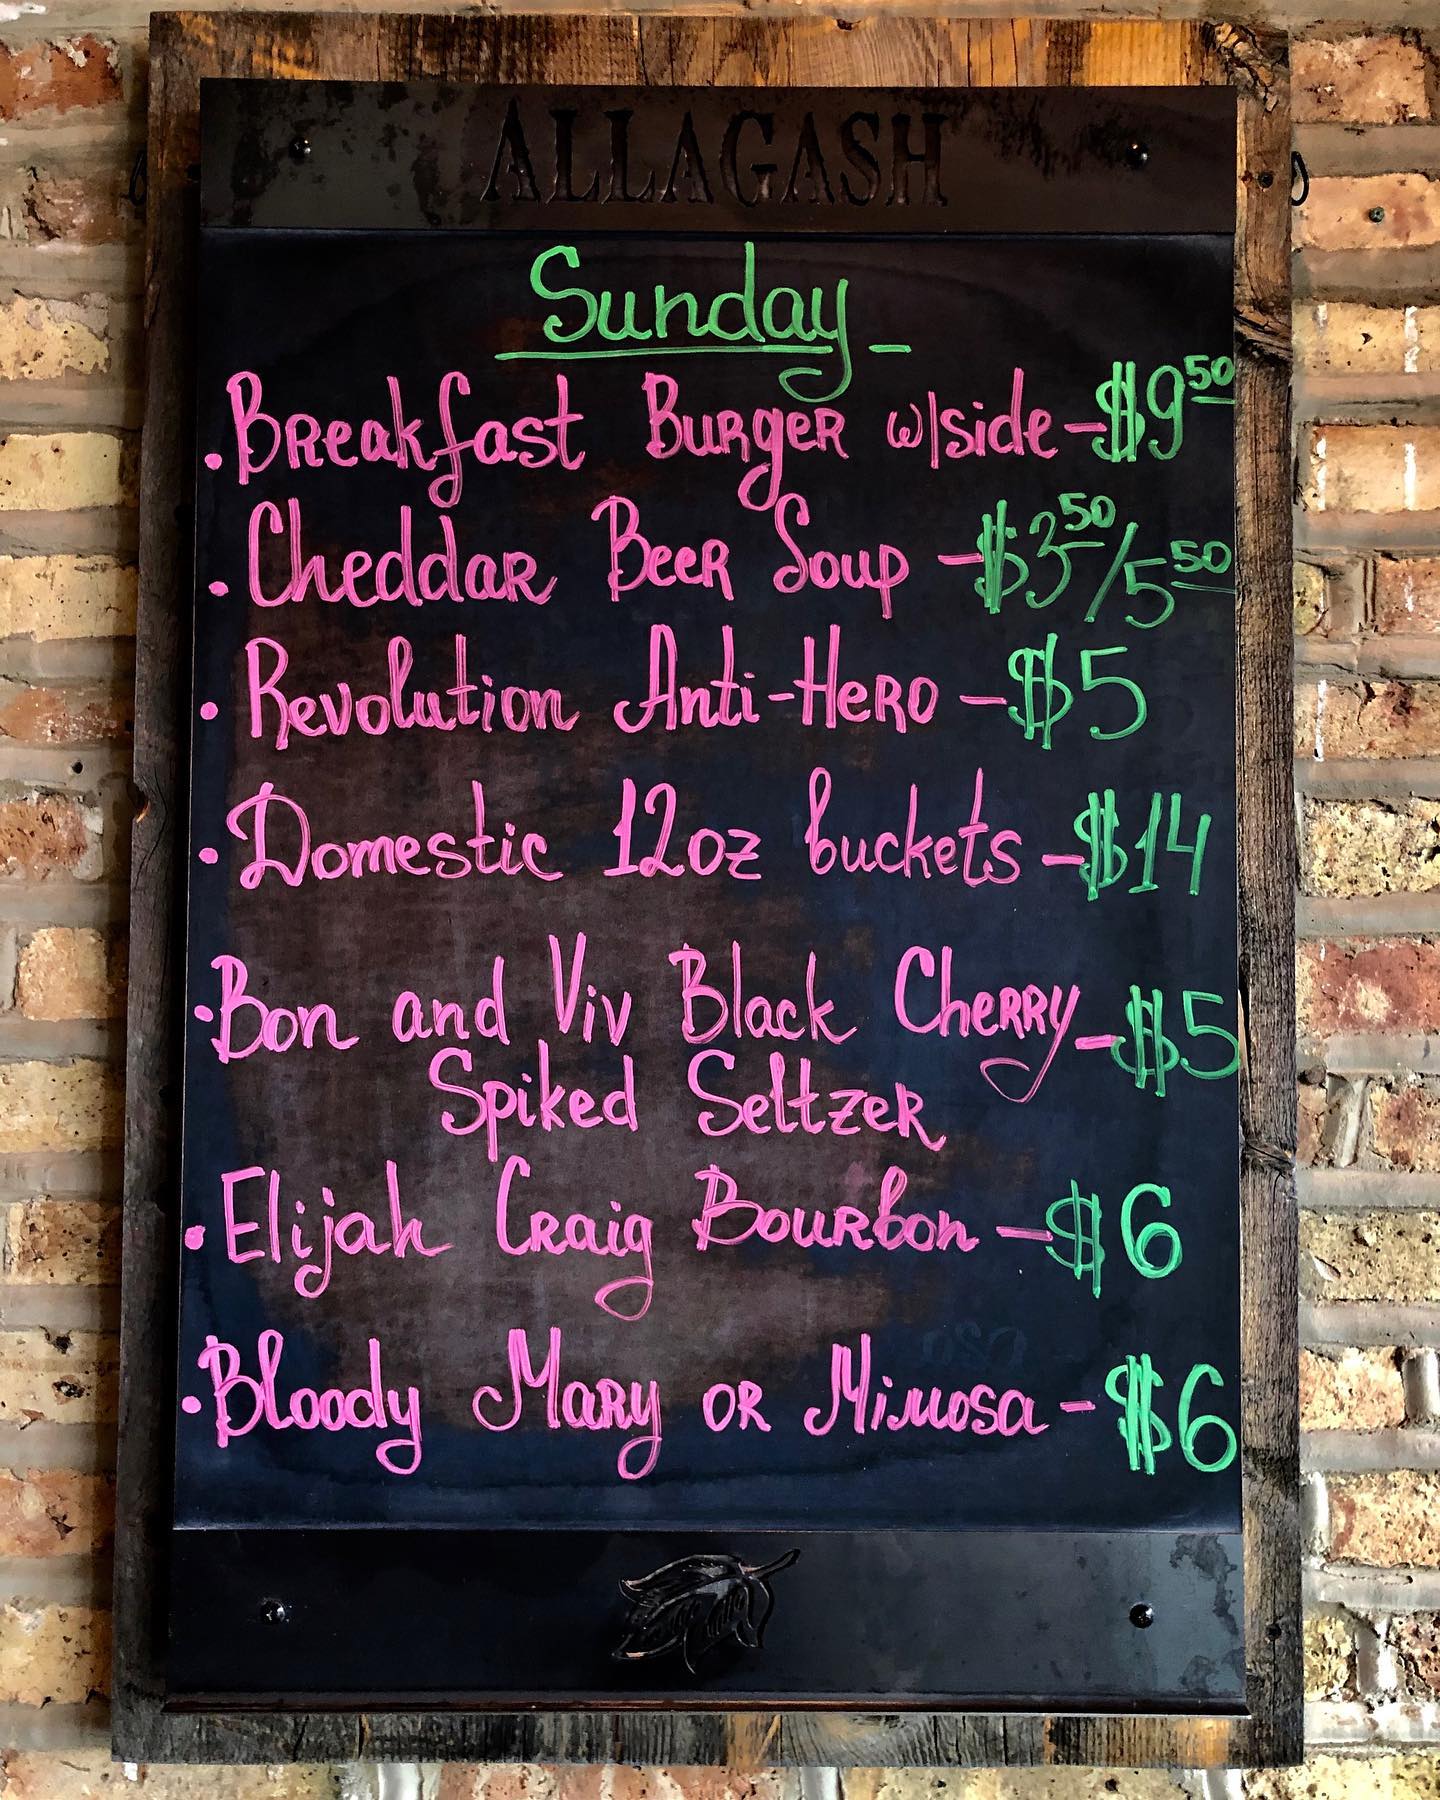 ALLAGASH
Sunday -
. Breakfast Burger w/side - $9.50
. Cheddar Beer Soup - $3.50/5.50
. Revolution Anti-Hero - $5
. Domestic 12oz buckets - $14
. Bon and Viv Black Cherry - $5
Spiked Seltzer
. Elijah Craig Bourbon - $6
. Bloody Mary or Mimosa - $6